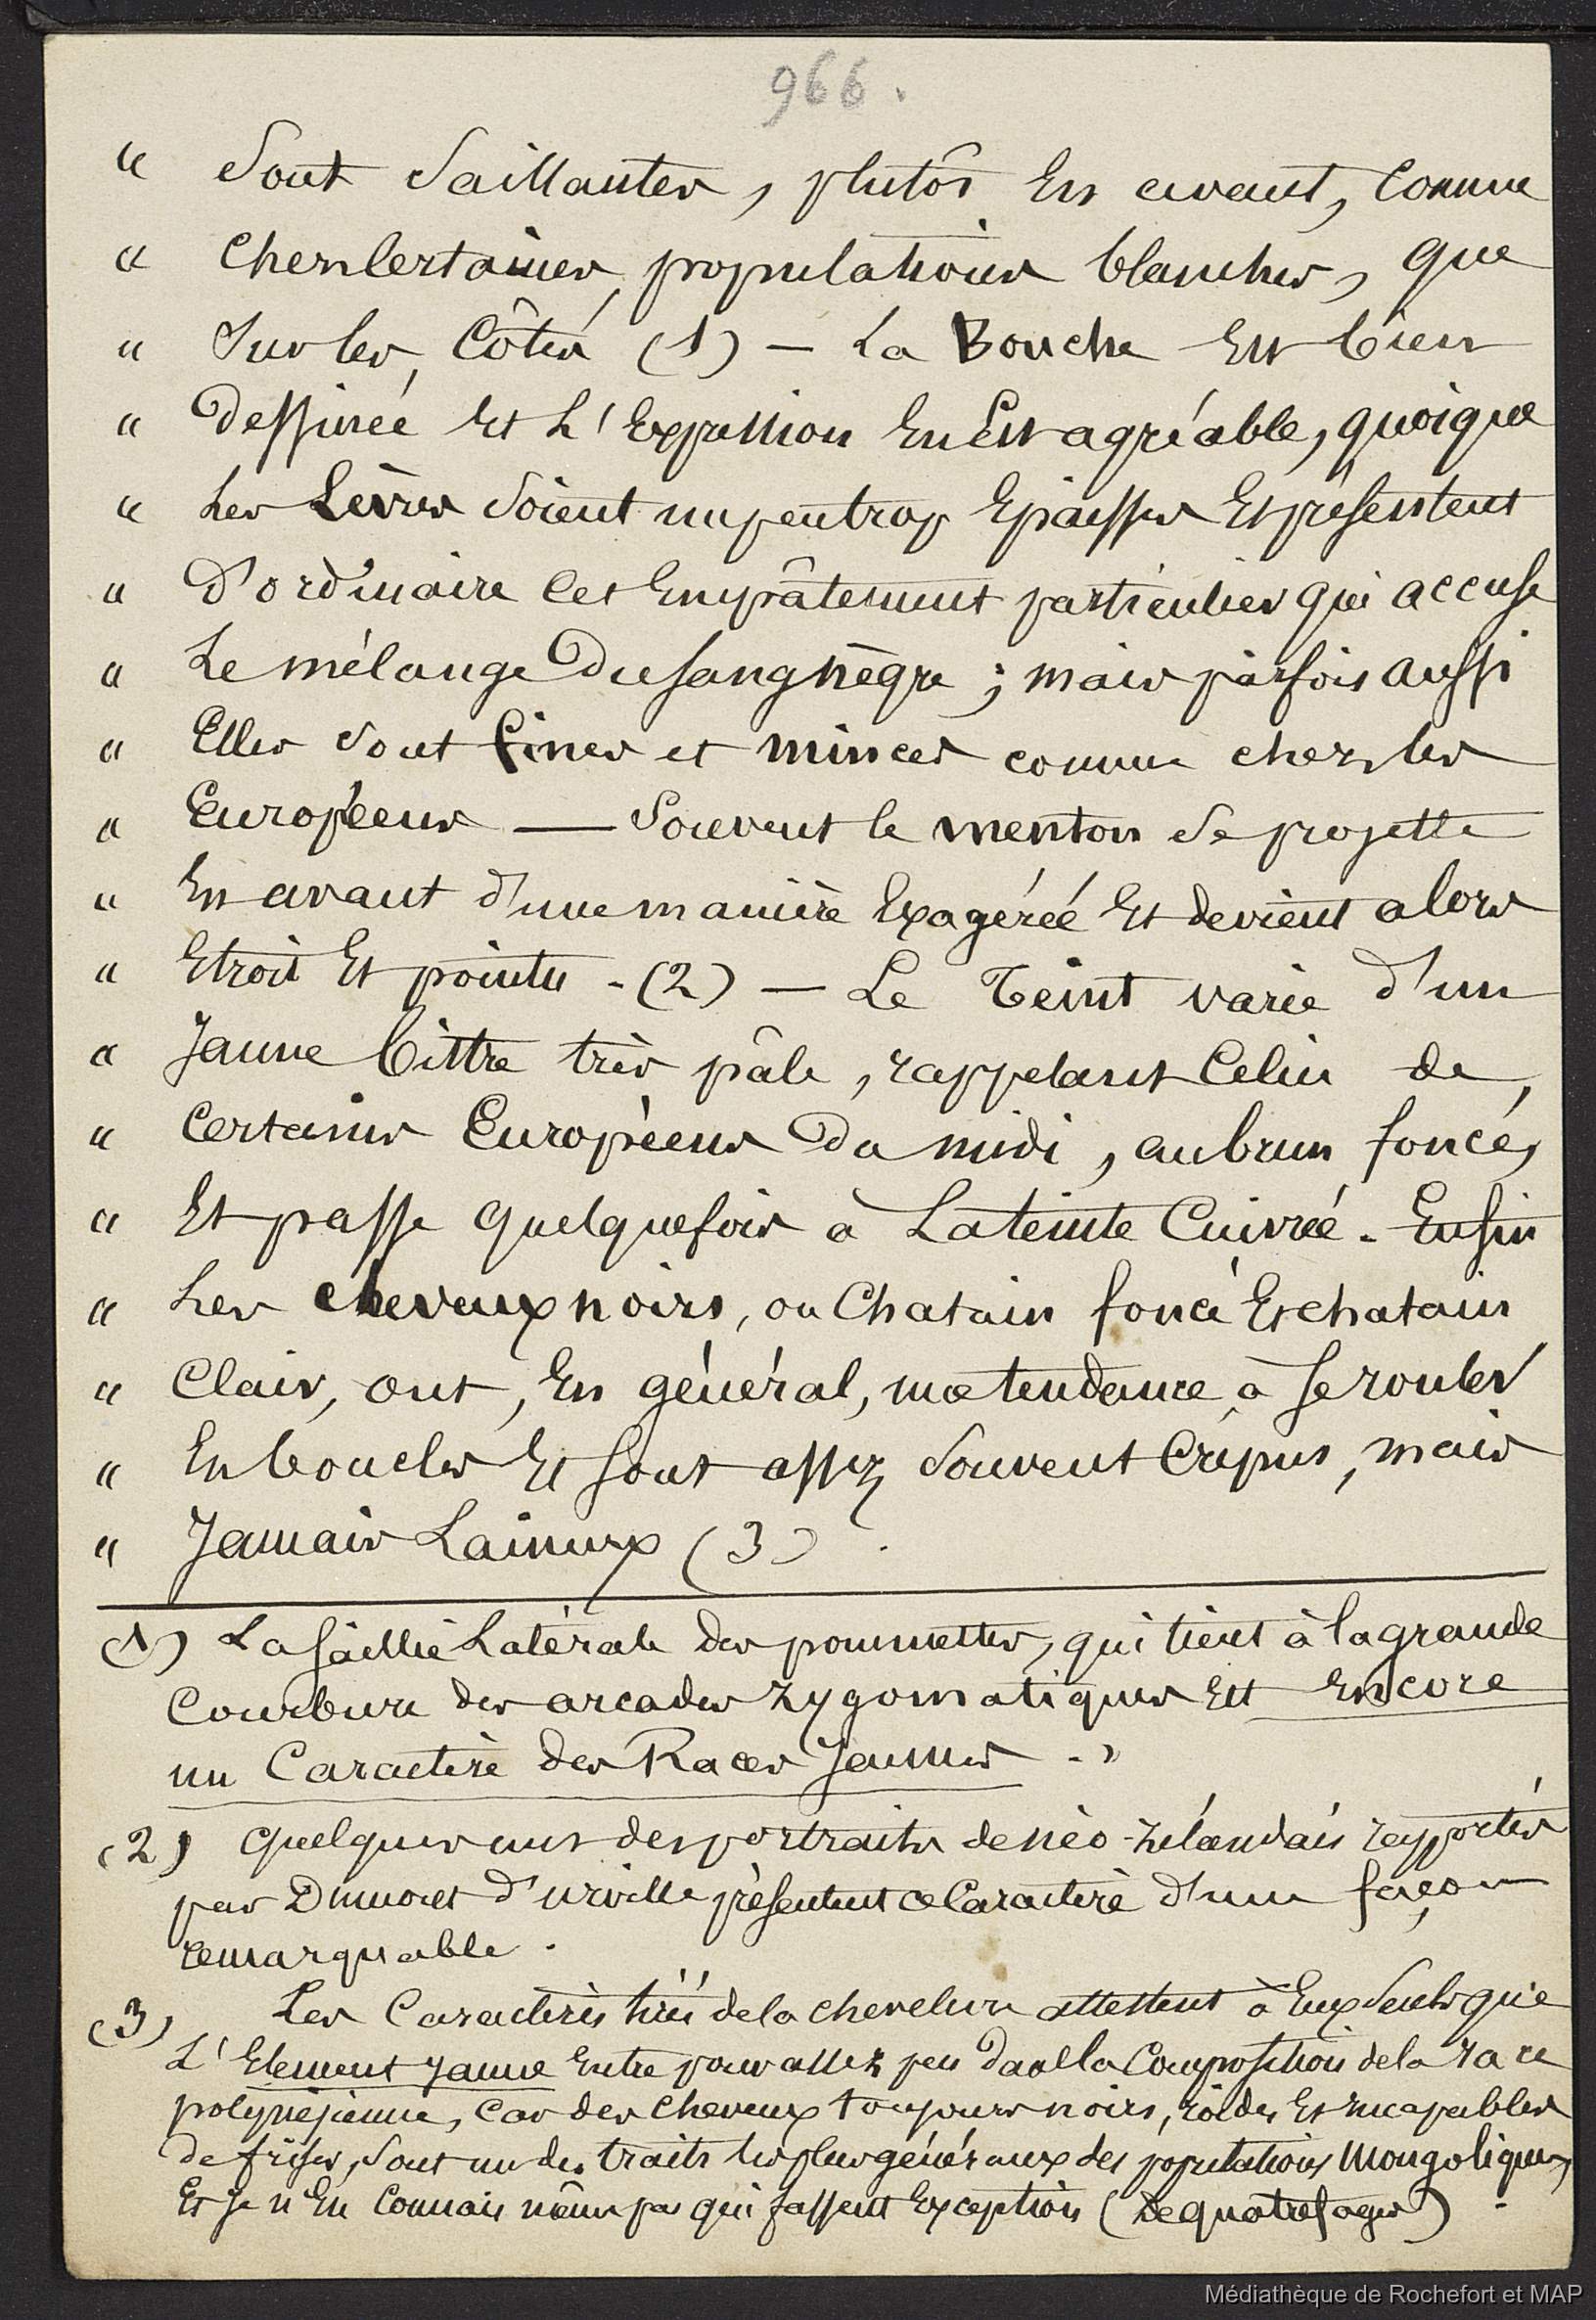 966.
" Sont Saillantes, plutôt En avant, Comme
" Chez Certaines populations blanches, que
" Sur les Côtés (1) — La Bouche Est bien
" Dessinée Et L'Expression En Est agréable, quoique
" Les Lèvres Soient un peu trop Epaisses Et présentent
" D'ordinaire Cet Empâtement particulier qui accuse
" Le mélange Du sang nègre ; mais parfois aussi
" Elles Sont fines et minces comme chez les
" Européens — Souvent le menton Se projette
" En avant d'une manière Exagérée Et devient alors
" Etroit Et pointu - (2) — Le Teint varie d'un
" Jaune bittre très pâle, rappelant Celui de
" Certains Européens Du midi, au brun foncé,
" Et passe quelquefois à La teinte Cuivrée - Enfin
" Les cheveux noirs, ou Chatain foncé Et chatain
" Clair, ont, En général, une tendance à Se rouler
" En boucles Et Sont assez Souvent Crépus, mais
" Jamais Laineux (3) .
(1) La Saillie Latérale des pommettes, qui tient à la grande
Courbure des arcades zygomatiques Est Encore
un Caractère des Races Jaunes - "
(2) quelques uns des portraits de néo-zélandais rapportés
par Dumont d'urville présentent ce Caractère d'une façon
remarquable .
(3) Les Caractères tirés de la chevelure attestent à Eux Seuls que
L'Elément Jaune Entre pour assez peu Dans la Composition de la race
polynésienne, Car des Cheveux toujours noirs, roides Et incapables
de friser, Sont un des traits les plus généraux des populations Mongoliques,
Et Je n'En Connais même pas qui fassent Exception (De quatrefages) -
Médiathèque de Rochefort et MAP